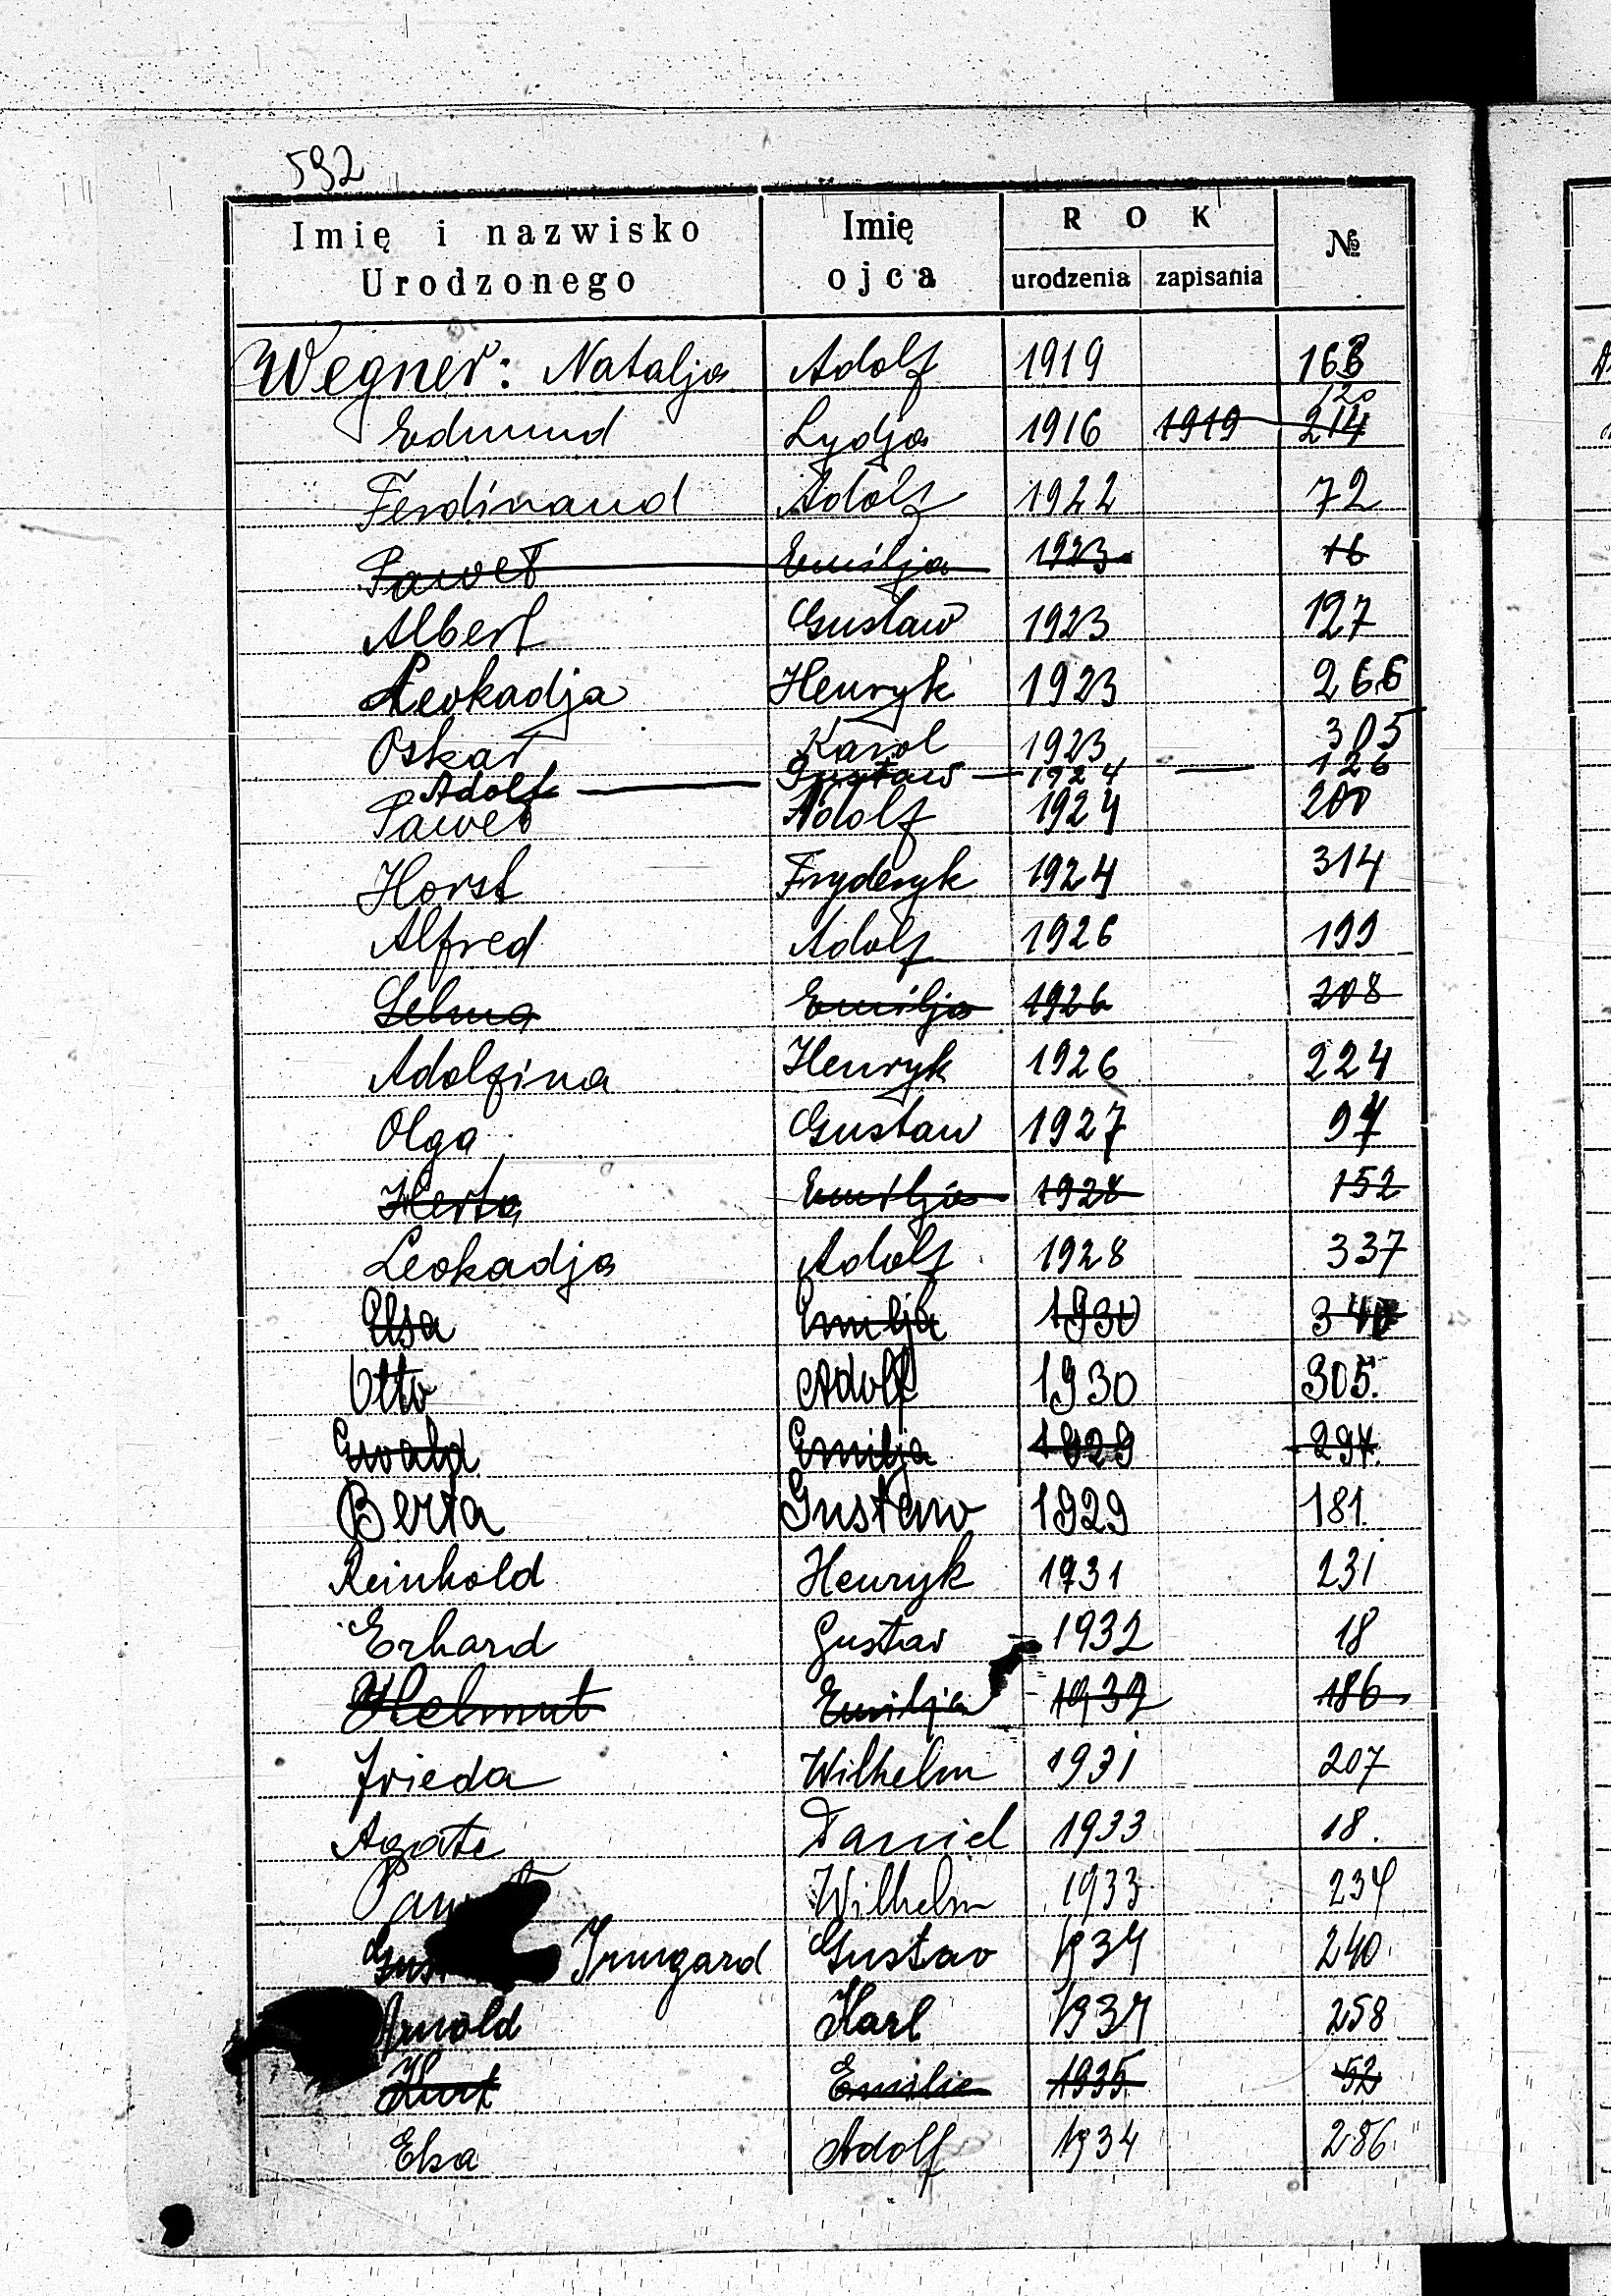 592
Imię i nazwisko Urodzonego Imię ojca ROK urodzenia zapisania №
Wegner: Natalja Adolf 1919 163
120
Edmund Lydja 1916 1919 214
Ferdinand Adolf 1922 72
Paweł Emilja 1923 16
Albert Gustaw 1923 127
Leokadja Henryk 1923 266
Oskar Karol 1923 305
Adolf — Gustaw — 1924 — 126
Paweł Adolf 1924 200
Horst Fryderyk 1924 314
Alfred Adolf 1926 199
Selma Emilja 1926 208
Adolfina Henryk 1926 224
Olga Gustaw 1927 97
Herta Emilja 1928 152
Leokadja Adolf 1928 337
Elsa Emilja 1930 340
Otto Adolf 1930 305.
Ewald Emilja 1929 297.
Berta Gustaw 1929 181.
Reinhold Henryk 1931 231
Erhard Gustav 1932 18
Helmut Emilja 1932 186
Frieda Wilhelm 1931 207
Agate Daniel 1933 18.
Wilhelm 1933 234
Irmgard Gustav 1934 240.
Arnold Karl 1934 258
Kurt Emilie 1935 52
Elsa Adolf 1934 286